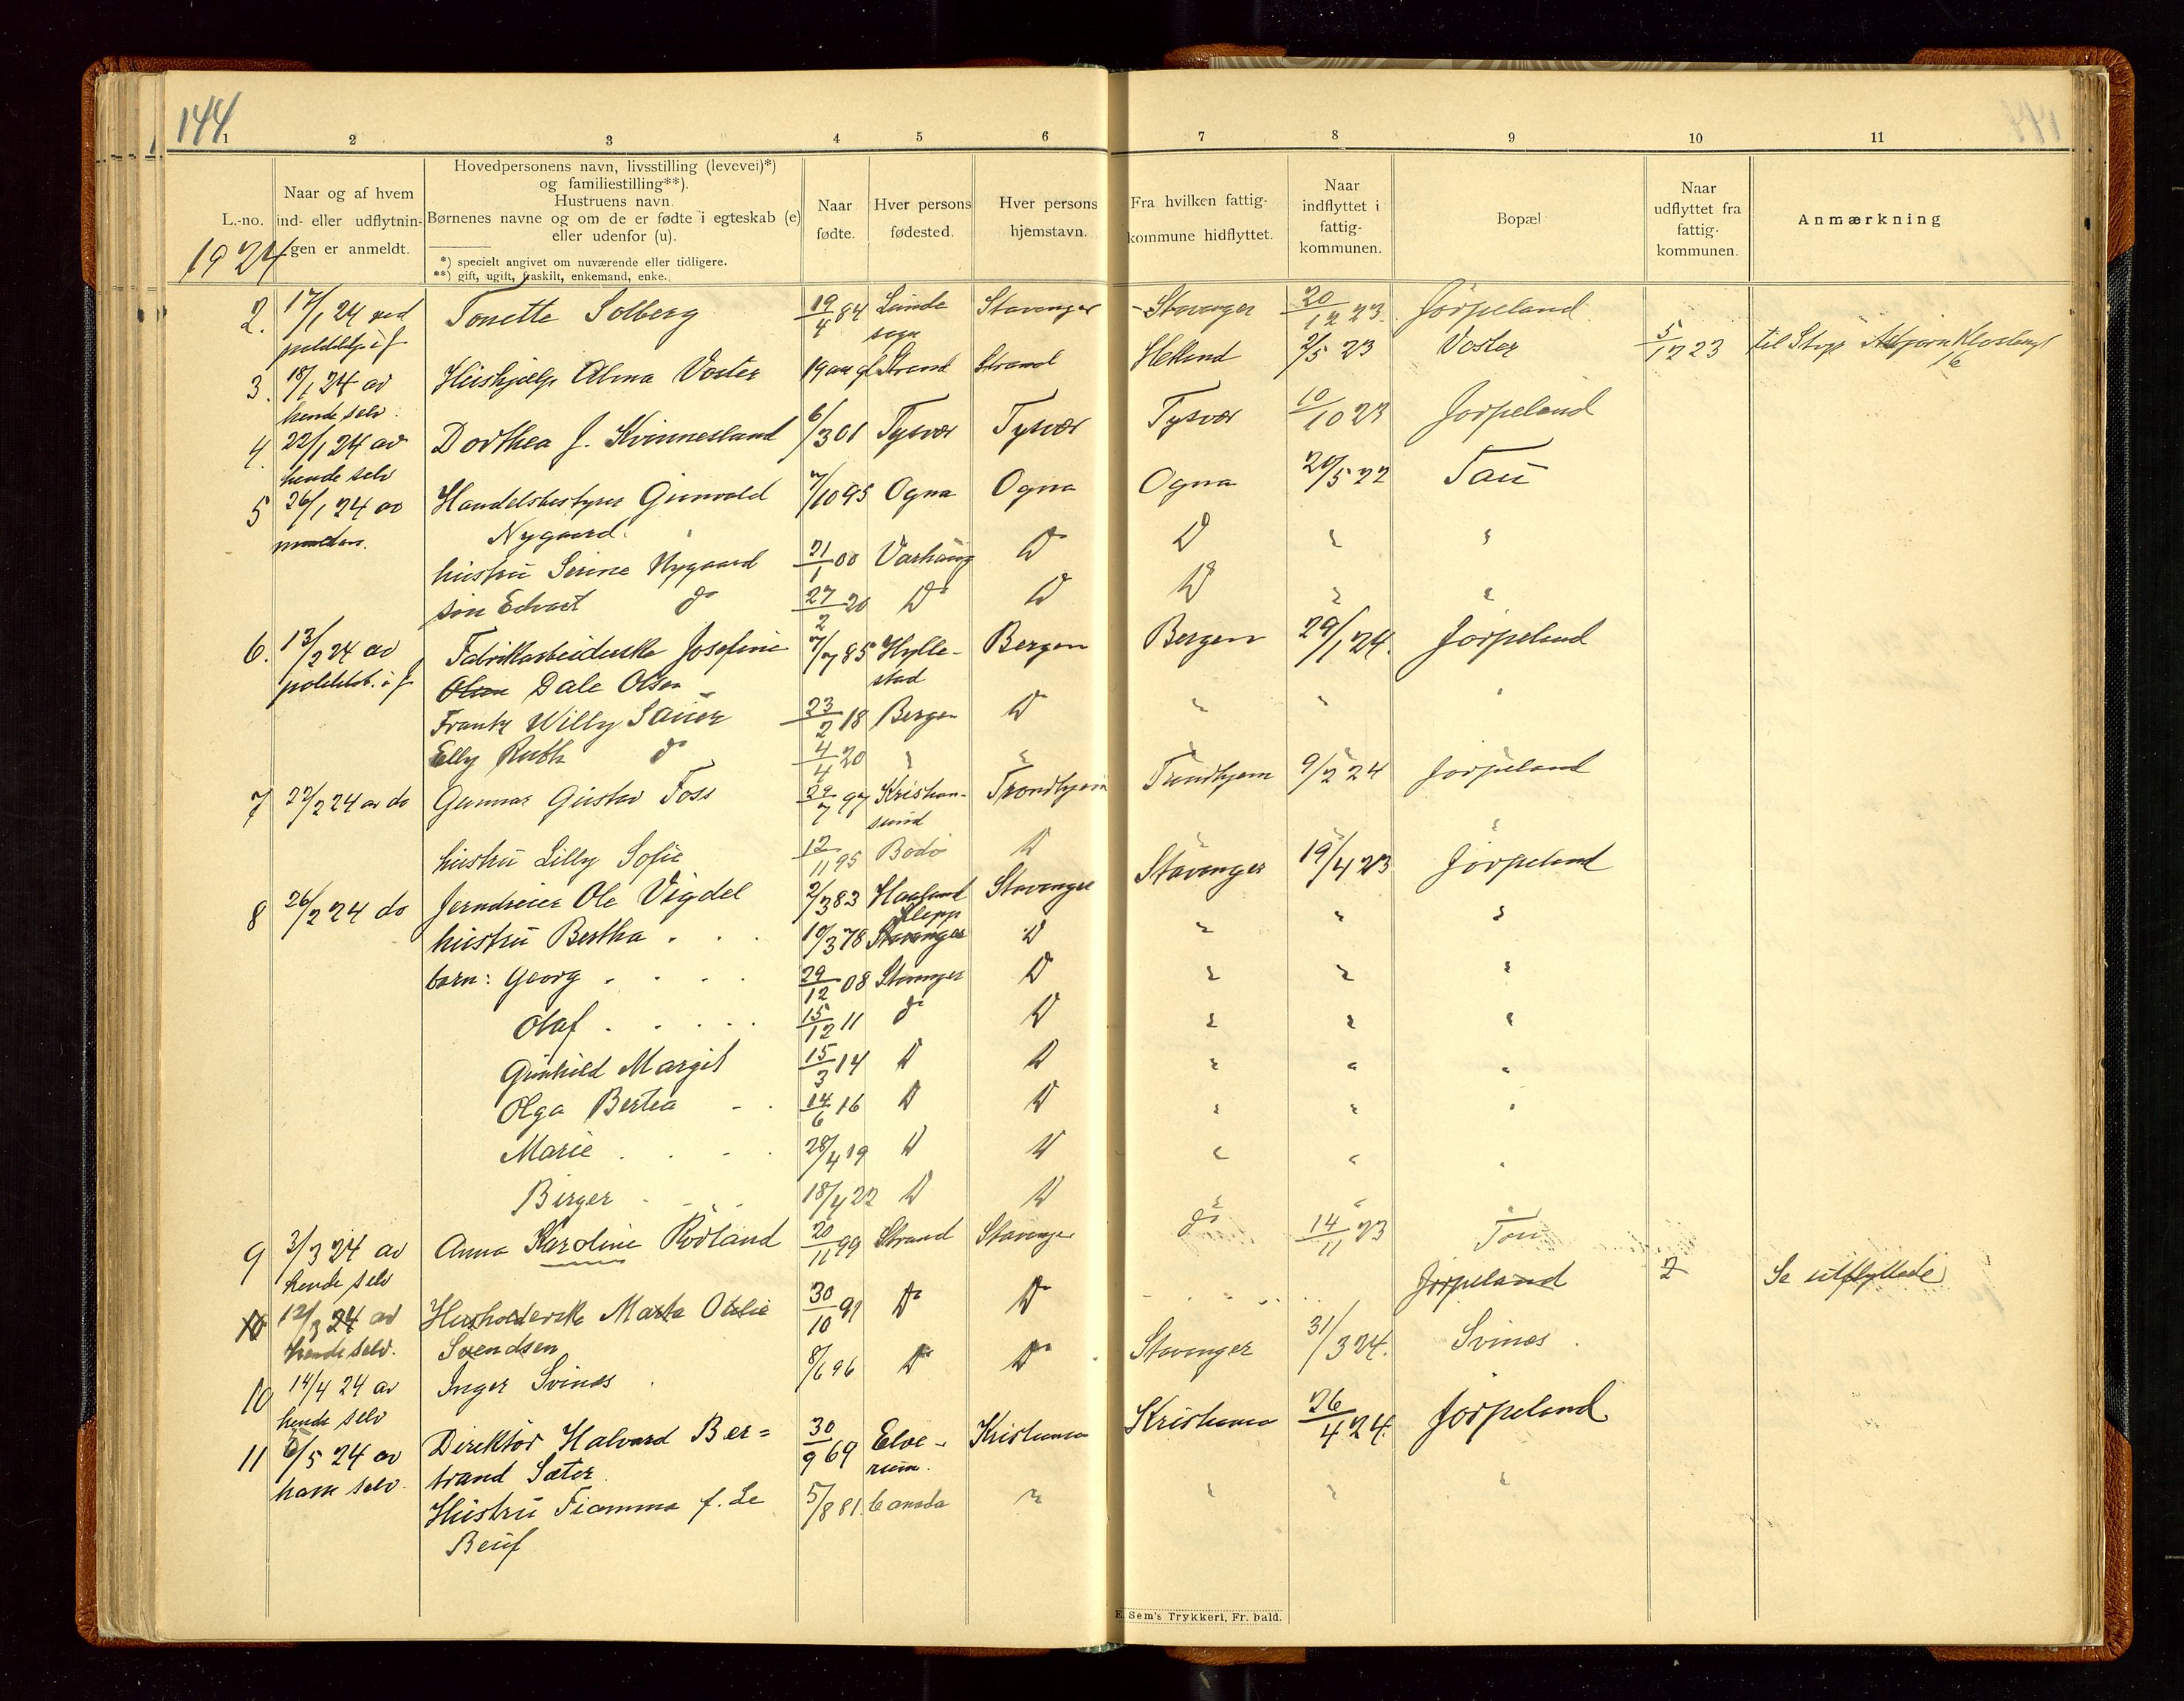 144
1 2 3 4 5 6 7 8 9 10 11
L.-no.
1924
Naar og af hvem
ind- eller udflytnin-
gen er anmeldt.
Hovedpersonens navn, livsstilling (levevei)*)
og familiestilling**).
Hustruens navn.
Børnenes navne og om de er fødte i egteskab (e)
eller udenfor (u).
*) specielt angivet om nuværende eller tidligere.
**) gift, ugift, fraskilt, enkemand, enke.
Naar
fødte.
Hver persons
fødested.
Hver persons
hjemstavn.
Fra hvilken fattig-
kommune hidflyttet.
Naar
indflyttet i
fattig-
kommunen.
Bopæl
Naar
udflyttet fra
fattig-
kommunen.
Anmærkning
2. 17/1 24 ved Tonette Solberg 19/4 84 Lunde Stavanger Stavanger 20/12 23 Jørpeland
sogn
3. 18/1 24 av Hushjælp Alma Voster 19 aar gl Strand Strand Helland 2/5 23 Voster 5/12 23
hende selv.
4. 22/1 24 av Dorthea J. Kvinnesland 6/3 01 Tysvær Tysvær Tysvær 10/10 23 Jørpeland
hende selv
5 26/1 24 av Handelsbestyrer Gunvald 7/10 95 Ogna Ogna Ogna 20/5 22 Tau
Nygaard.
hustru Serine Nygaard 21/1 00 Varhaug Do Do " "
søn Edvart do 27/2 20 Do Do Do " "
6. 13/2 24 av Fabrikarbeiderske Josefine 7/7 85 Hylle- Bergen Bergen 29/1 24. Jørpeland
Olsen Dale Olsen stad
Frantz Willy Sauer 23/2 18 Bergen Do " " "
Elly Ruth do 4/4 20 " " " " "
7 22/2 24 av do Gunnar Gustav Foss 29/7 97 Kristian- Trondhjem Trondhjem 9/2 24 Jørpeland
sund
hustru Lilly Sofie 12/11 95 Bodø Do " " "
8 26/2 24 do Jerndreier Ole Vigdel 2/3 83 Haaland Stavanger Stavanger 19/4 23 Jørpeland
Klepp
hustru Bertha 10/3 78 Stavanger Do " " "
barn: Georg 29/12 08 Stavanger Do " " "
Olaf 15/12 11 do Do " " "
Gunhild Margit 15/3 14 Do Do " " "
Olga Bertea 14/6 16 Do Do " " "
Marie 28/4 19 Do Do " " "
Birger 18/4 22 Do Do " " "
9 3/3 24 av Anna Karoline Rødland 20/11 99 Strand Stavanger do 14/11 23 Tau
hende selv
10 12/3 24 av Husholderske Marta Otelie 30/10 91 Do Do Jørpeland ? Se utflyttede
hende selv. Svendsen
10 14/4 24 av Inger Svines 8/6 96 Do Do Stavanger 31/3 24. Svines
hende selv
11 6/5 24 av Direktør Halvard Ber= 30/9 69 Elve- Kristiania Kristiania 26/4 24. Jørpeland
ham selv. trand Sæter. rum.
Hustru Fiamma f. Le 5/8 81. Canada " " " "
Beuf
E. Sem's Trykkeri, Fr. hald.